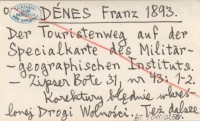 DÉNES Franz 1893.
Der Touristenweg auf der
Specialkarte des Militär-
-geographischen Instituts.
— Zipser Bote 31, nr 43: 1-2.
Korektury błędnie
Drogi Wolności. Też dalsze